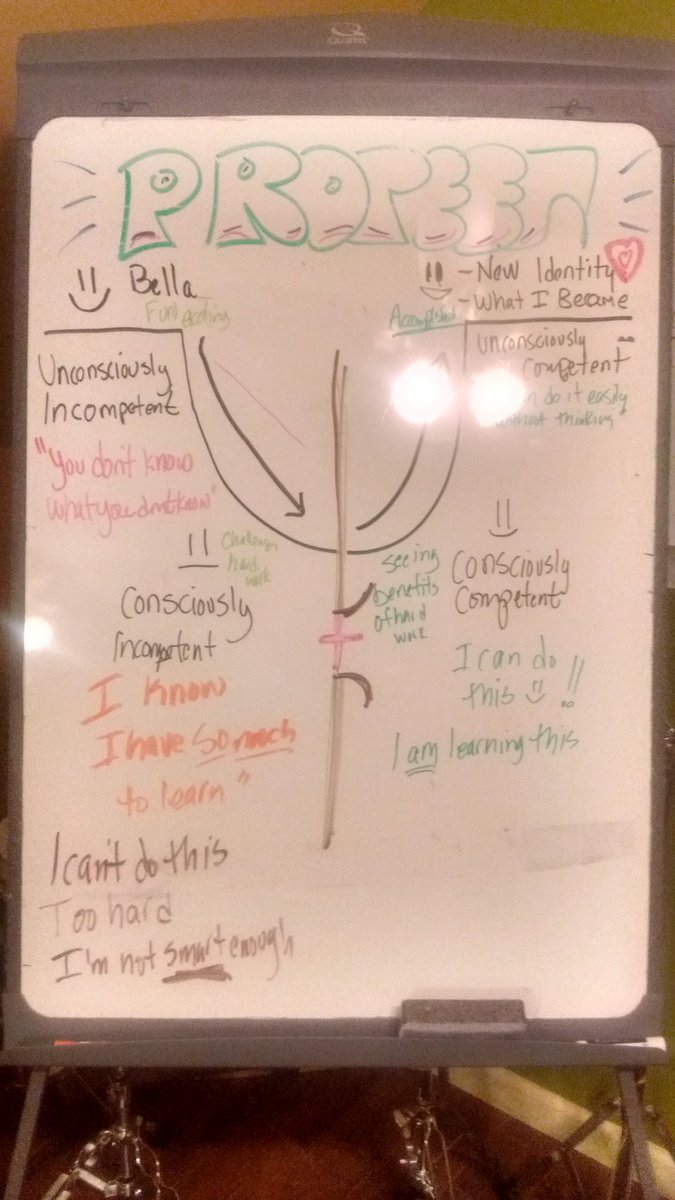 Quartet
Bella
Fun! exciting
Unconsciously
Incompetent
"You don't know
what you dont know"
Challenges
hard
work
Consciously
Incompetent
I know
I have so much
to learn"
I can't do this
Too hard
I'm not smart enough
- New Identity
- What I Became
Accomplished
Unconsciously
Competent
do it easily
without thinking"
seeing
benefits
of hard
work
Consciously
Competent
I can do
this !!
I am learning this